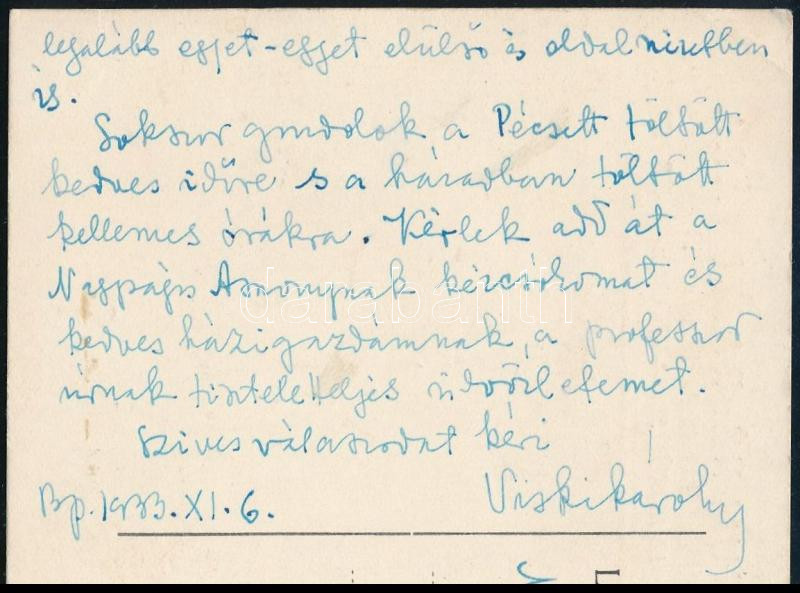 legalább egyet-egyet elülső és oldalnézetben
is.
Sokszor gondolok a Pécsett töltött
kedves időre s a házadban töltött
kellemes órákra. Kérlek add át a
Nagyságos Asszonynak kézcsókomat és
kedves házigazdámnak, a professor
úrnak tiszteletteljes üdvözletemet.
Szives válaszodat kéri
Viski Károly
Bp. 1933. XI. 6.
darabanth